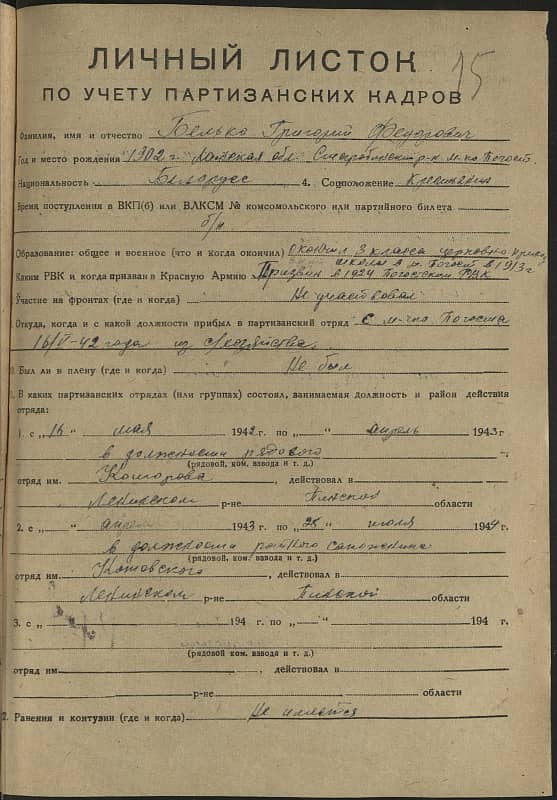 15
ЛИЧНЫЙ ЛИСТОК
ПО УЧЕТУ ПАРТИЗАНСКИХ КАДРОВ
Фамилия, имя и отчество Белько Григорий Федорович
Год и место рождения 1902 г. обл. Старобинский р-н м-ко Погост
Национальность Белорус 4. Соцположение Крестьянин
Время поступления в ВКП(б) или ВЛКСМ № комсомольского или партийного билета
б/п
Образование: общее и военное (что и когда окончил) окончил 3 класса церковно приход
школы в м. Погост в 1913 г
Каким РВК и когда призван в Красную Армию Призван в 1924 Погостским РВК
Участие на фронтах (где и когда) Не участвовал
Откуда, когда и с какой должности прибыл в партизанский отряд с м-чко Погоста
16/V-42 года из с/хозяйства
Был ли в плену (где и когда) Не был
В каких партизанских отрядах (или группах) состоял, занимаемая должность и район действия
отряда:
1. с „16“ мая 1942 г. по „ “ апрель 1943 г
в должности рядового
(рядовой, ком. взвода и т. д.)
отряд им. , действовал в
Ленинском р-не Пинской области
2. с „ “ апрель 1943 г. по „ “ июля 1944 г.
в должности ротного сапожника
(рядовой ком. взвода и т. д.)
отряд им. Котовского , действовал в
Ленинском р-не Пинской области
3. с „ “ 194 г. по „ “ 194 г.
(рядовой ком. взвода и т. д.)
отряд им. , действовал в
р-не области
2. Ранения и контузии (где и когда) Не имеется